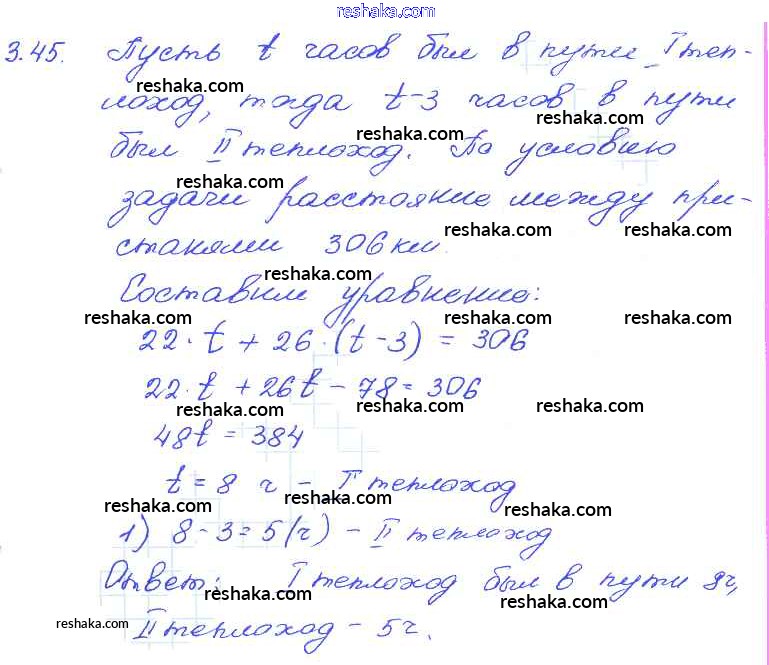 reshaka.com
3.45. Пусть t часов был в пути I теп-
reshaka.com
лоход, тогда t-3 часов в пути
reshaka.com reshaka.com
был II теплоход. По условию
reshaka.com
задачи расстояние между при-
reshaka.com
станями 306 км.
reshaka.com
Составим уравнение:
reshaka.com reshaka.com reshaka.com
22·t + 26·(t-3) = 306
22·t + 26t - 78 = 306
reshaka.com reshaka.com reshaka.com
48t = 384
t = 8 ч - I теплоход
reshaka.com reshaka.com reshaka.com
1) 8-3=5(ч) - II теплоход
Ответ: I теплоход был в пути 8ч,
reshaka.com reshaka.com reshaka.com
reshaka.com II теплоход - 5ч.